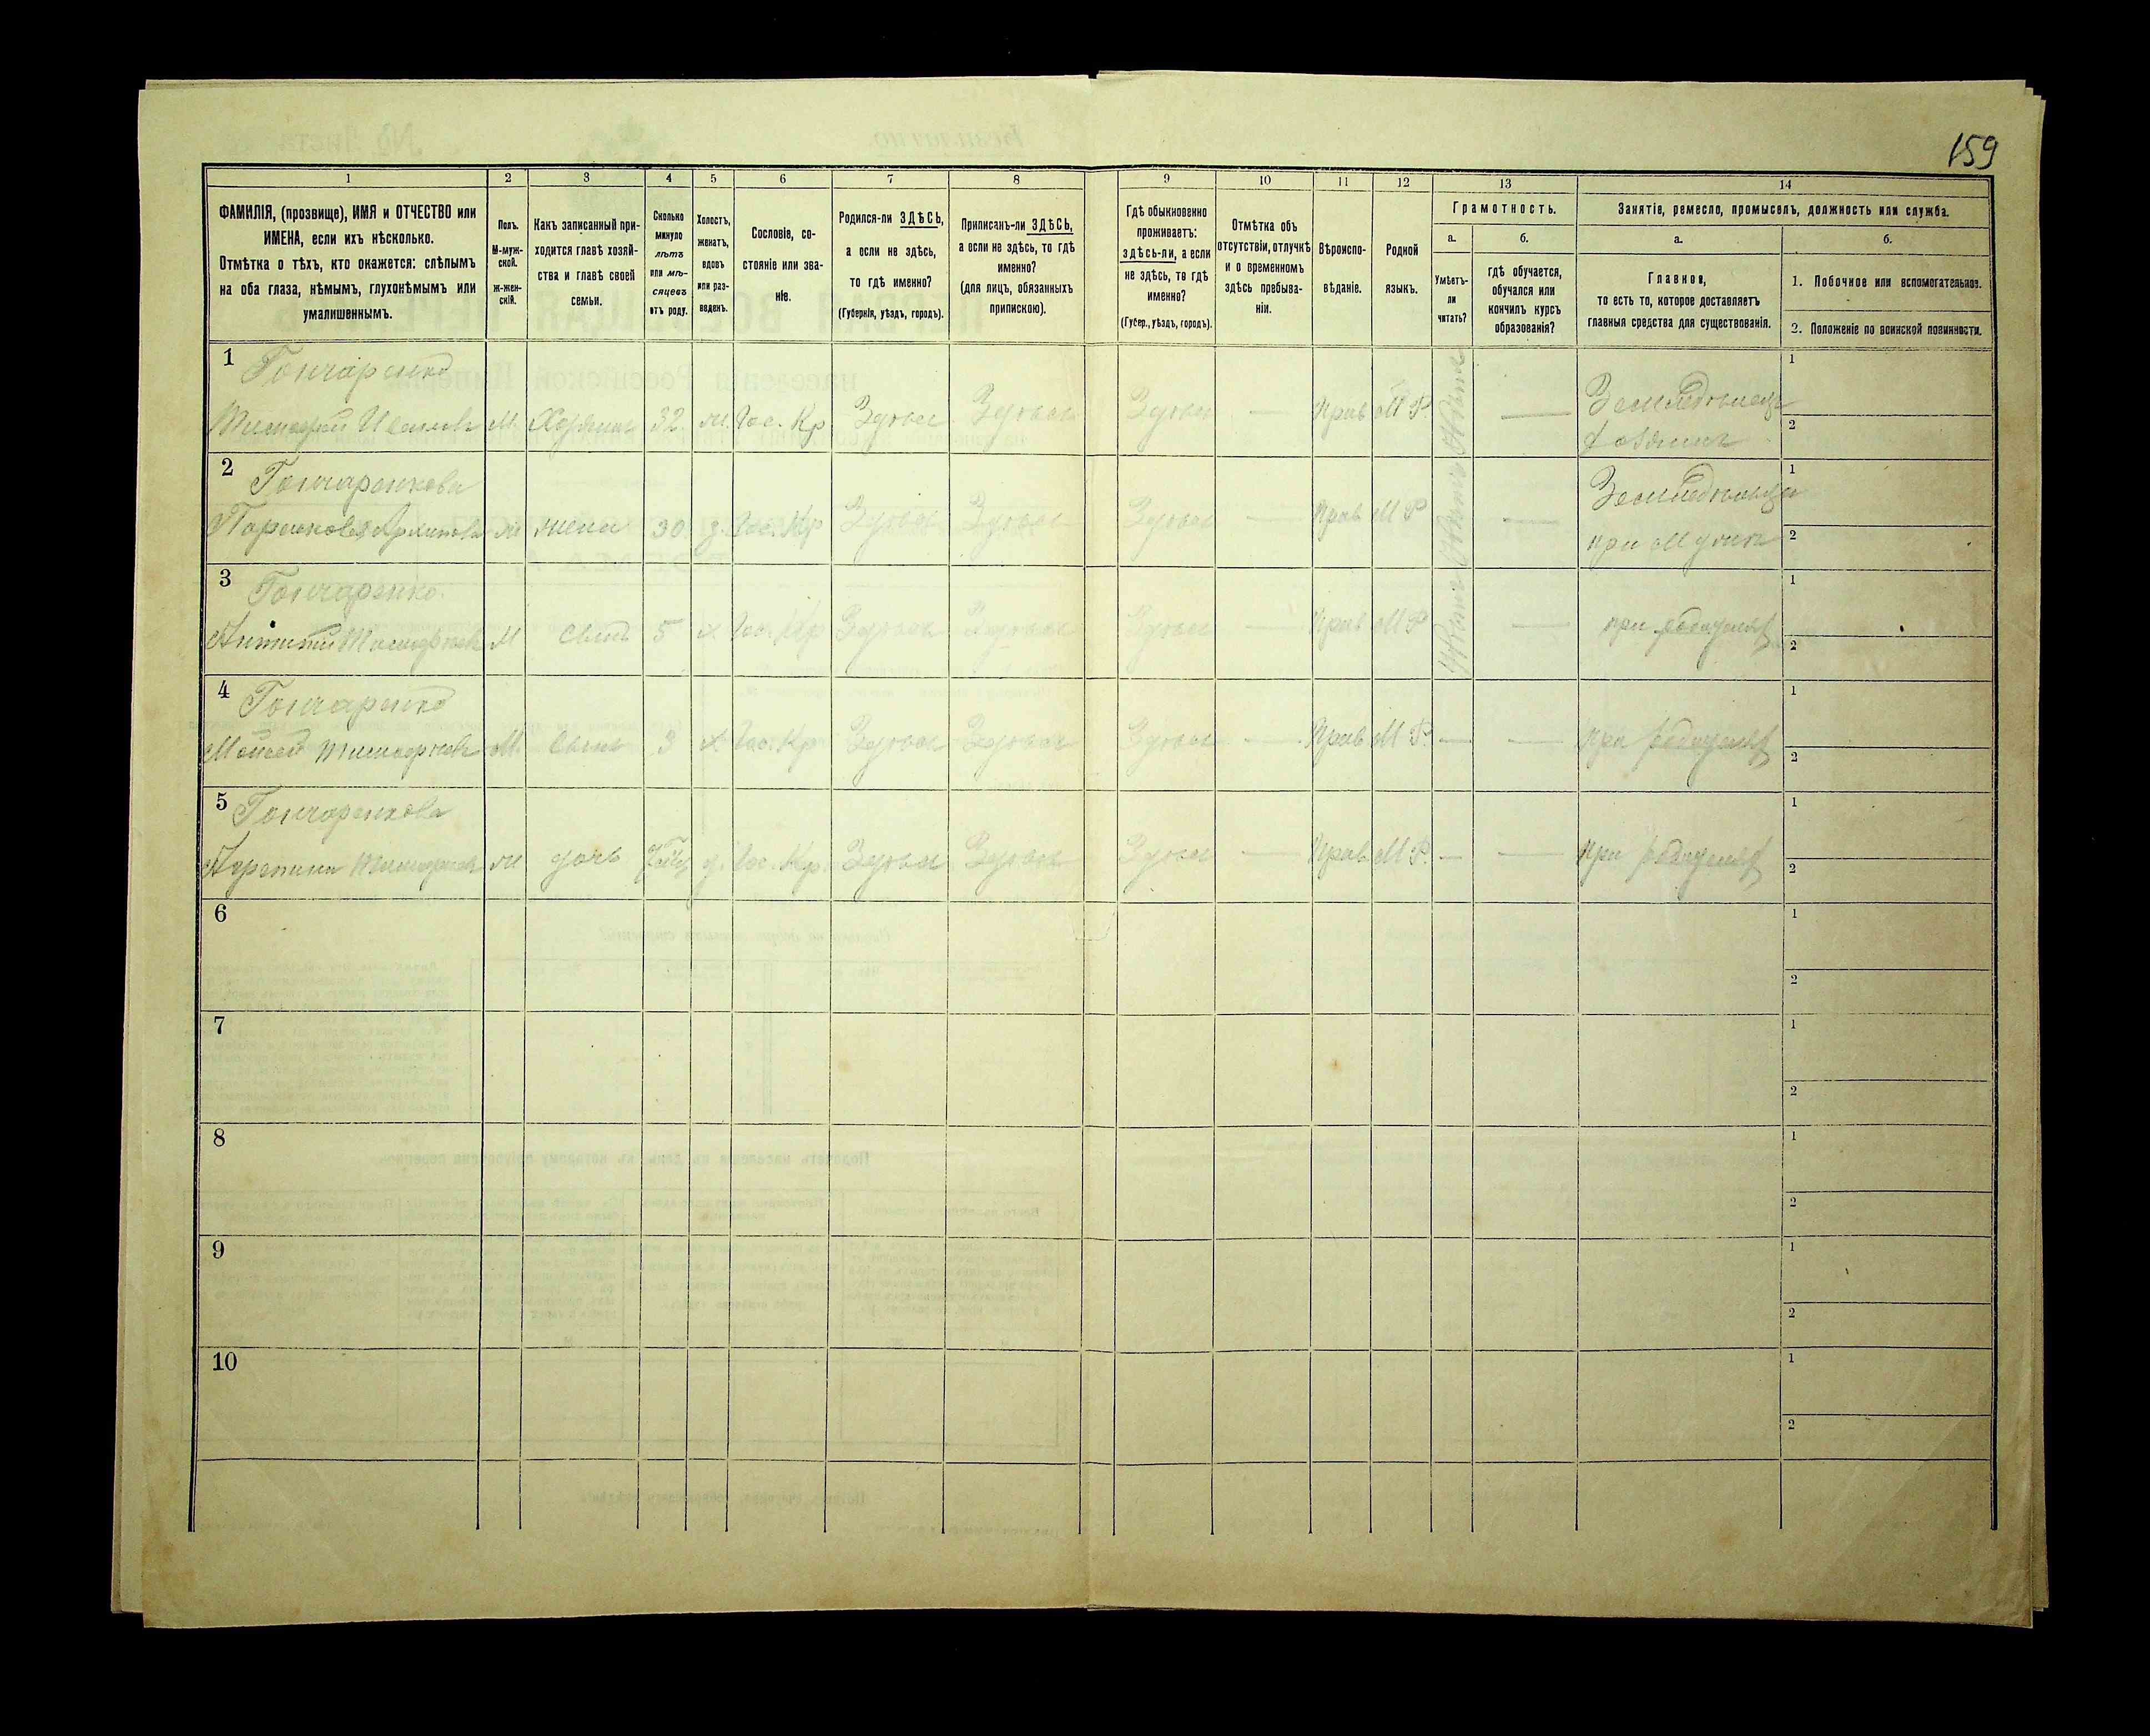 159
1 2 3 4 5 6 7 8 9 10 11 12 13 14
ФАМИЛІЯ, (прозвище), ИМЯ и ОТЧЕСТВО или
ИМЕНА, если ихъ нѣсколько.
Отмѣтка о тѣхъ, кто окажется: слѣпымъ
на оба глаза, нѣмымъ, глухонѣмымъ или
умалишеннымъ.
Полъ.
М-муж-
ской.
ж-жен-
скій.
Какъ записанный при-
ходится главѣ хозяй-
ства и главѣ своей
семьи.
Сколько
минуло
лѣтъ
или мѣ-
сяцевъ
отъ роду.
Холостъ,
женатъ,
вдовъ
или раз-
веденъ.
Сословіе, со-
стояніе или зва-
ніе.
Родился-ли ЗДѢСЬ,
а если не здѣсь,
то гдѣ именно?
(Губернія, уѣздъ, городъ).
Приписанъ-ли ЗДѢСЬ,
а если не здѣсь, то гдѣ
именно?
(для лицъ, обязанныхъ
припискою).
Гдѣ обыкновенно
проживаетъ:
здѣсь-ли, а если
не здѣсь, то гдѣ
именно?
(Губер., уѣздъ, городъ).
Отмѣтка объ
отсутствіи, отлучкѣ
и о временномъ
здѣсь пребыва-
ніи.
Вѣроиспо-
вѣданіе.
Родной
языкъ.
Грамотность.
а.
Умѣетъ-
ли
читать?
б.
гдѣ обучается,
обучался или
кончилъ курсъ
образованія?
Занятіе, ремесло, промыселъ, должность или служба.
а.
Главное,
то есть то, которое доставляетъ
главныя средства для существованія.
б.
1. Побочное или вспомогательное.
2. Положеніе по воинской повинности.
1 Гончаренко 1
Тимофей Ивановъ М. Хозяинъ 32. ж. Гос. Кр Здѣсь Здѣсь Здѣсь — Прав М Р — Земледѣлецъ
хозяинъ 2
2 Гончаренкова 1
ж жена 30 з. Гос. Кр Здѣсь Здѣсь Здѣсь — Прав М Р — Земледѣлецъ
при мужѣ 2
3 Гончаренко 1
М Сынъ 5 х Гос. Кр Здѣсь Здѣсь Здѣсь — Прав М Р — при родителяхъ
2
4 Гончаренко 1
Моисей Тимофѣевъ М. Сынъ 3 х Гос. Кр Здѣсь Здѣсь Здѣсь — Прав М Р. — — при родителяхъ
2
5 Гончаренкова 1
ж дочь д. Гос. Кр. Здѣсь Здѣсь Здѣсь — Прав М Р. — — при родителяхъ
2
6 1
2
7 1
2
8 1
2
9 1
2
10 1
2